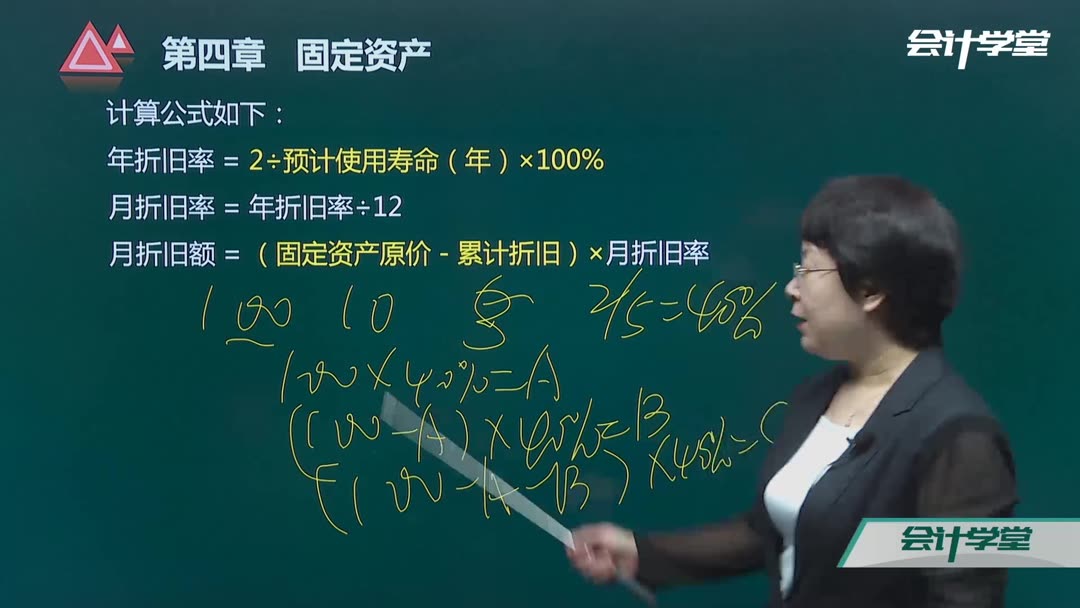 第四章 固定资产
会计学堂
计算公式如下：
年折旧率 = 2÷预计使用寿命（年）×100%
月折旧率 = 年折旧率÷12
月折旧额 = （固定资产原价－累计折旧）×月折旧率
100 10 5 2/5=40%
100×40%=A
(100-A)×40%=B
(100-A-B)×40%=C
会计学堂